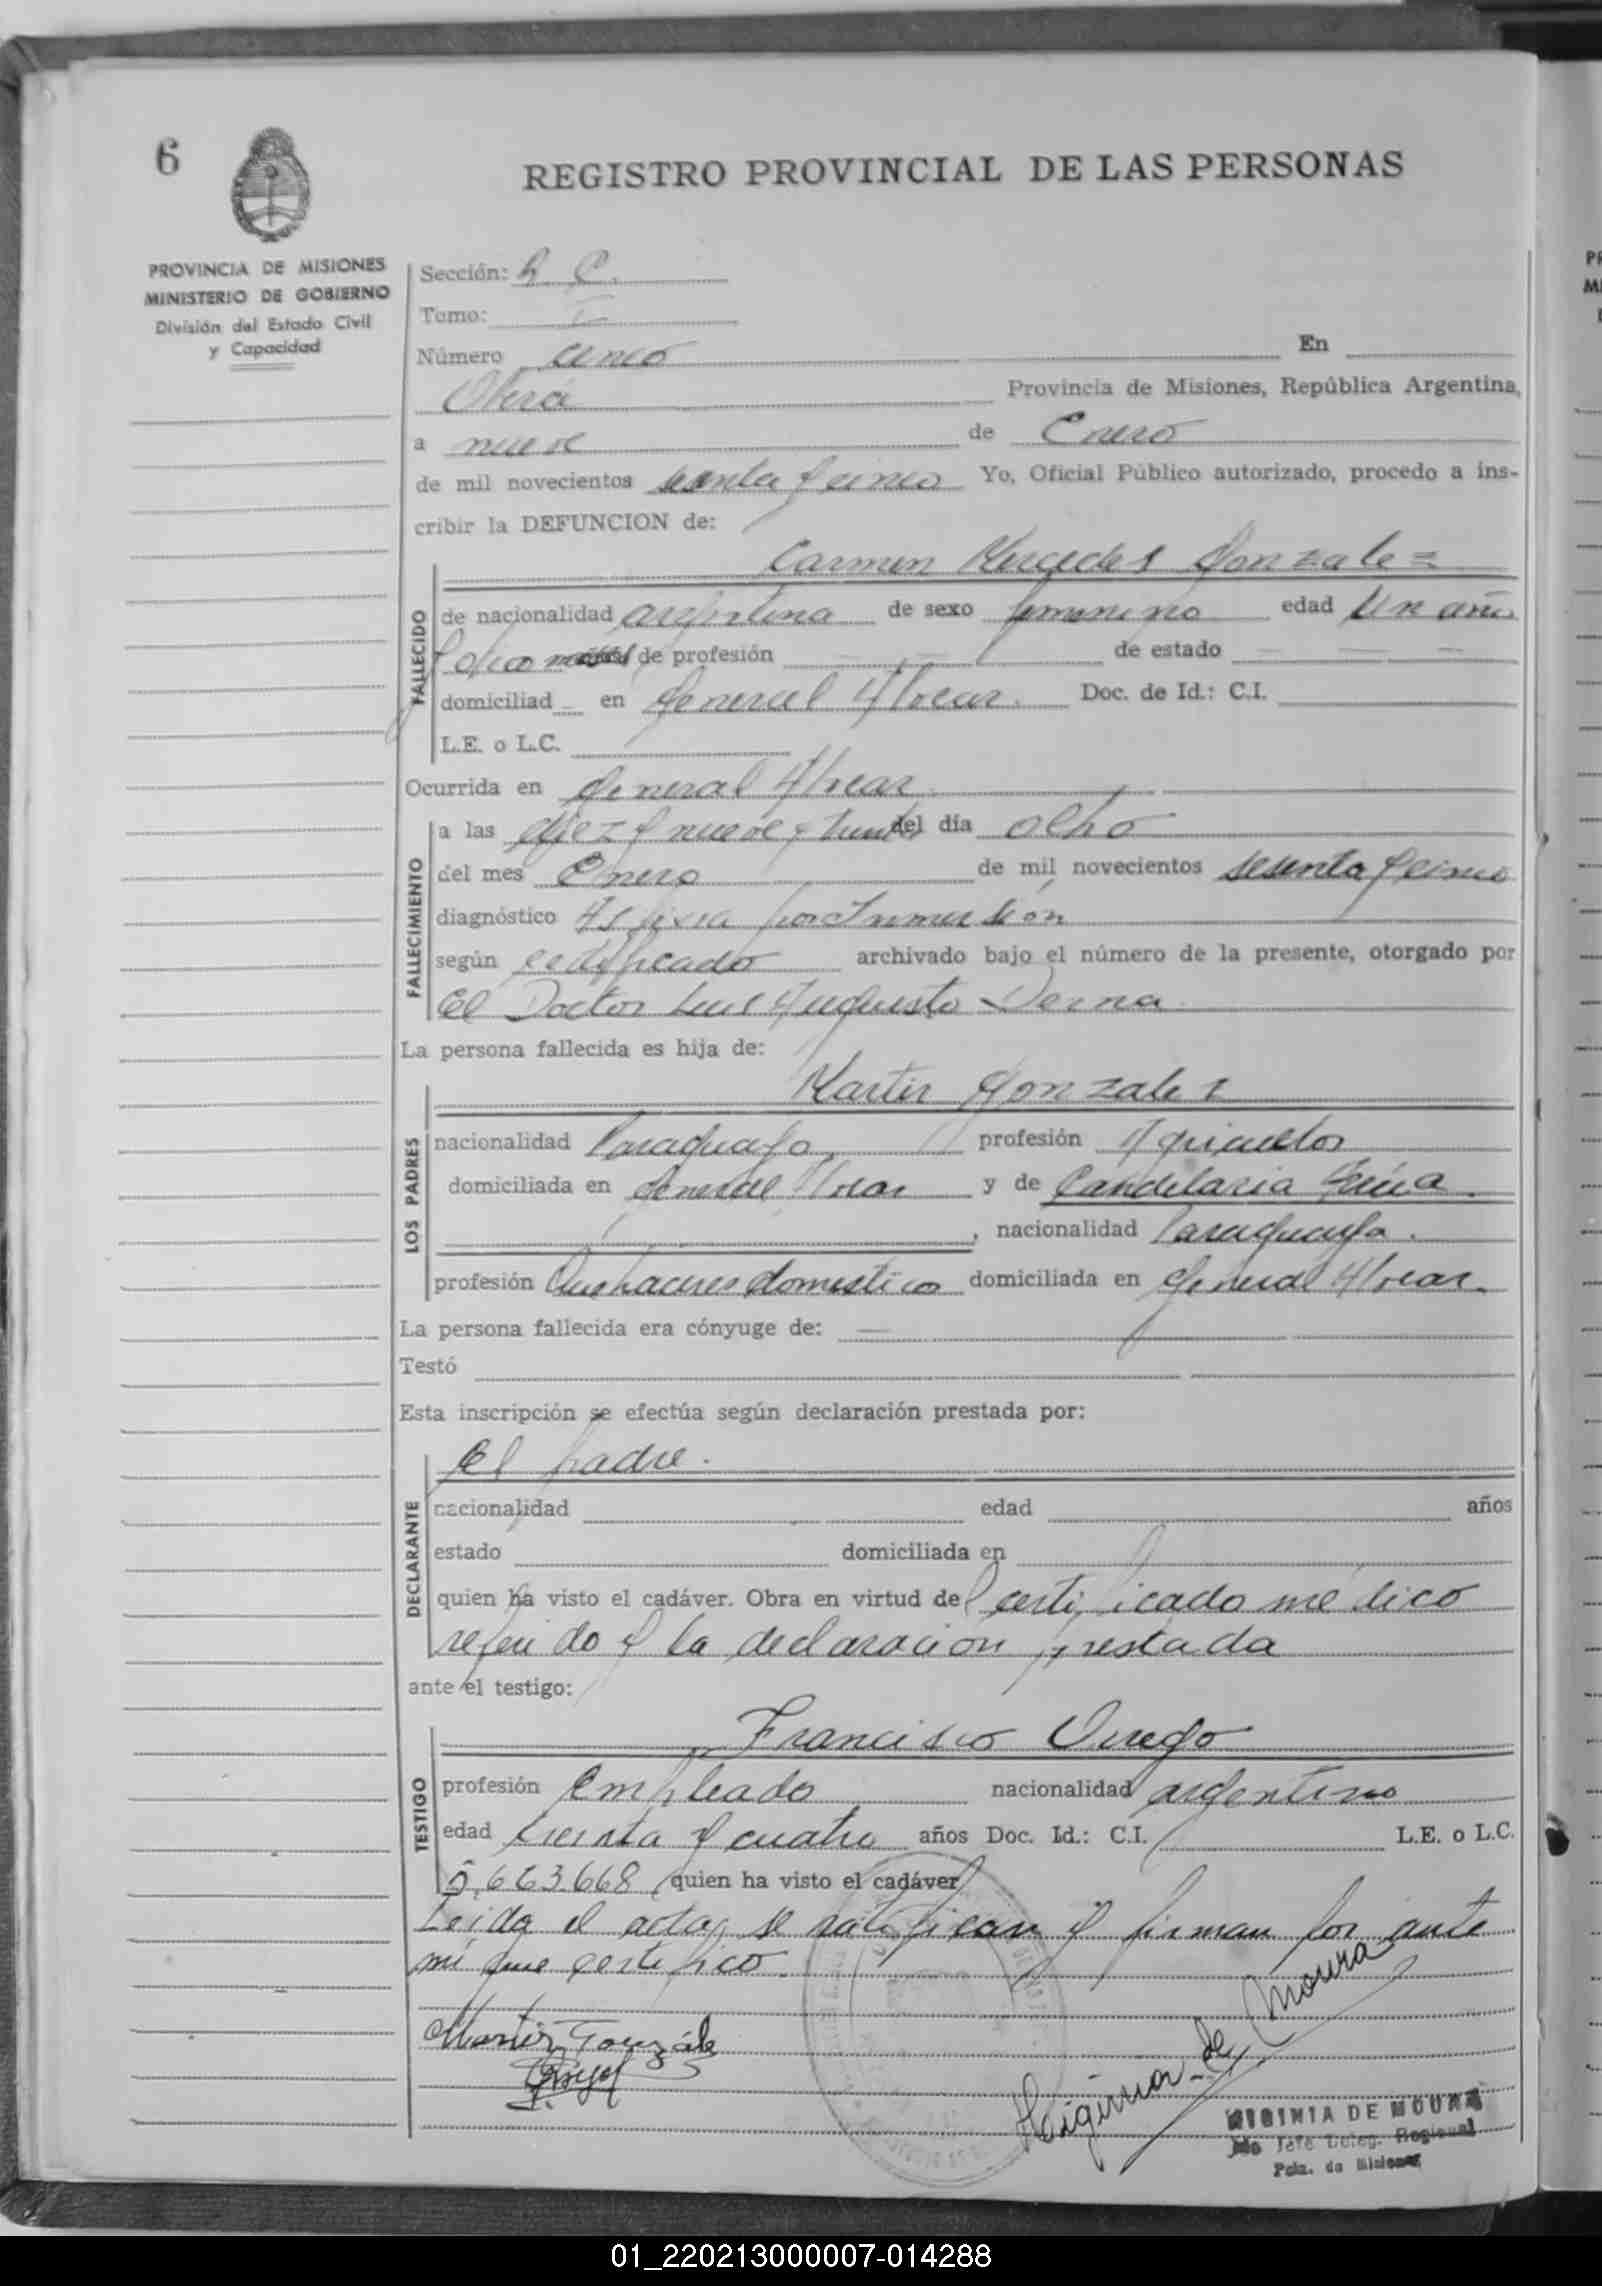 6
REGISTRO PROVINCIAL DE LAS PERSONAS
PROVINCIA DE MISIONES
MINISTERIO DE GOBIERNO
División del Estado Civil
y Capacidad
Sección: R. C.
Tomo: I
Número cinco En
Oberá Provincia de Misiones, República Argentina,
a nueve de Enero
de mil novecientos sesenta y cinco Yo, Oficial Público autorizado, procedo a ins-
cribir la DEFUNCION de:
Carmen Mercedes Gonzalez
FALLECIDO
de nacionalidad argentina de sexo femenino edad Un año
de profesión — — de estado — — —
domiciliad en General Alvear. Doc. de Id.: C.I.
L.E. o L.C.
Ocurrida en General Alvear.
FALLECIMIENTO
a las diez y nueve y del día ocho
del mes Enero de mil novecientos sesenta y cinco
diagnóstico Asfixia por Inmersión
según certificado archivado bajo el número de la presente, otorgado por
El Doctor Luis Augusto Derna.
La persona fallecida es hija de:
Martir Gonzalez
LOS PADRES
nacionalidad Paraguayo, profesión Agricultor
domiciliada en General Alvear y de Candelaria
, nacionalidad Paraguaya.
profesión Quehaceres domestico domiciliada en General Alvear.
La persona fallecida era cónyuge de: —
Testó
Esta inscripción se efectúa según declaración prestada por:
El padre.
DECLARANTE
nacionalidad edad años
estado domiciliada en
quien ha visto el cadáver. Obra en virtud del certificado médico
referido y la declaración prestada
ante el testigo:
Francisco Orrego
TESTIGO
profesión Empleado nacionalidad argentino
edad treinta y cuatro años Doc. Id.: C.I. L.E. o L.C.
5.663.668 quien ha visto el cadáver
Leida el acta, se ratifican y firman por ante
mi que certifico.
Martir González
Higinia de Moura
HIGINIA DE MOURA
Jefe Deleg. Regional
Pcia. de Misiones
01_220213000007-014288